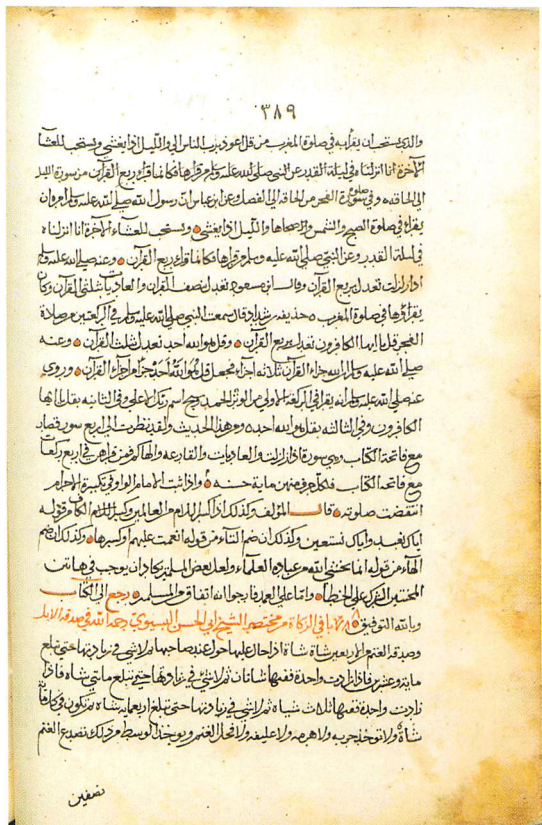 ٣٨٩
والذي يستحب ان يقرأ به في صلوة المغرب من قل اعوذ برب الناس الى والليل اذا يغشى ويستحب للعشا
الآخرة انا انزلناه في ليلة القدر عن النبي صلى الله عليه وسلم من قرأها فكأنما قرأ ربع القرآن من سورة
الى الحاقه وفي صلوة الفجر من الحاقه الى الفصل وعن ابن عباس ان رسول الله صلى الله عليه وسلم امر ان
يقرأ في صلوة الصبح والشمس وضحاها والليل اذا يغشى ويستحب للعشاء الآخرة انا انزلناه
في ليلة القدر وعن النبي صلى الله عليه وسلم من قرأها فكأنما قرأ ربع القرآن وعنه صلى الله عليه وسلم
اذا زلزلت تعدل بربع القرآن وقال ابن مسعود تعدل نصف القرآن والعاديات ثلثي القرآن وكان
يقرأوها في صلوة المغرب حذيفه قال سمعت النبي صلى الله عليه وسلم في الركعتين من صلاة
الفجر قل يا ايها الكافرون تعدل بربع القرآن وقل هو الله احد تعدل ثلث القرآن وعنه
صلى الله عليه وسلم ان الله جزاء القرآن ثلاثة اجزاء فجعل قل هو الله احد جزأ من اجزاء القرآن وروي
عنه صلى الله عليه وسلم انه يقرأ في الركعة الاولى من الوتر الحمد وسبح اسم ربك الاعلى وفي الثانيه بقل يا ايها
الكافرون وفي الثالثه بقل هو الله احد ومن هذا الحديث والقدر نظرت الى اربع سور قصار
مع فاتحة الكتاب وهي سورة اذا زلزلت والعاديات والقارعه والهاكم فمن قرأهن في اربع ركعات
مع فاتحة الكتاب فله بكل حرف منهن ماية حسنه واذا ثبت الامام الواو في تكبيرة الاحرام
انتقضت صلوته قال المؤلف وكذلك ان كسر اللام من العالمين وكسر الكاف من قوله
اياك نعبد واياك نستعين وكذلك ان ضم التآء من قوله انعمت عليهم وكسرها وكذلك ان ضم
الهآء من قوله انما يخشى الله من عباده العلماء ولعل بعض المسلمين كاد ان يوجب في هاتين
على الخطأ واما على العمد فارجو انه اتفاق من المسلمين رجع الى الكتاب
وبالله التوفيق باب في الزكاة من مختصر الشيخ ابي الحسن البسيوي رحمه الله في صدقة الابل
وصدقة الغنم في الاربعين شاة شاة اذا حال عليها حول عند صاحبها ثم لا شي في زيادتها حتى تبلغ
ماية وعشرين فاذا زادت واحدة ففيها شاتان ثم لا شي في زيادتها حتى تبلغ مائتي شاه فاذا
زادت واحدة ففيها ثلاث شياه ثم لا شي في زيادتها حتى تبلغ اربعماية شاه ثم تكون في كل ماية
شاة ولا تؤخذ جربه ولا هرمه ولا عليفه ولا فحل الغنم ويوخذ الوسط من ذلك تصدع الغنم
نصفين